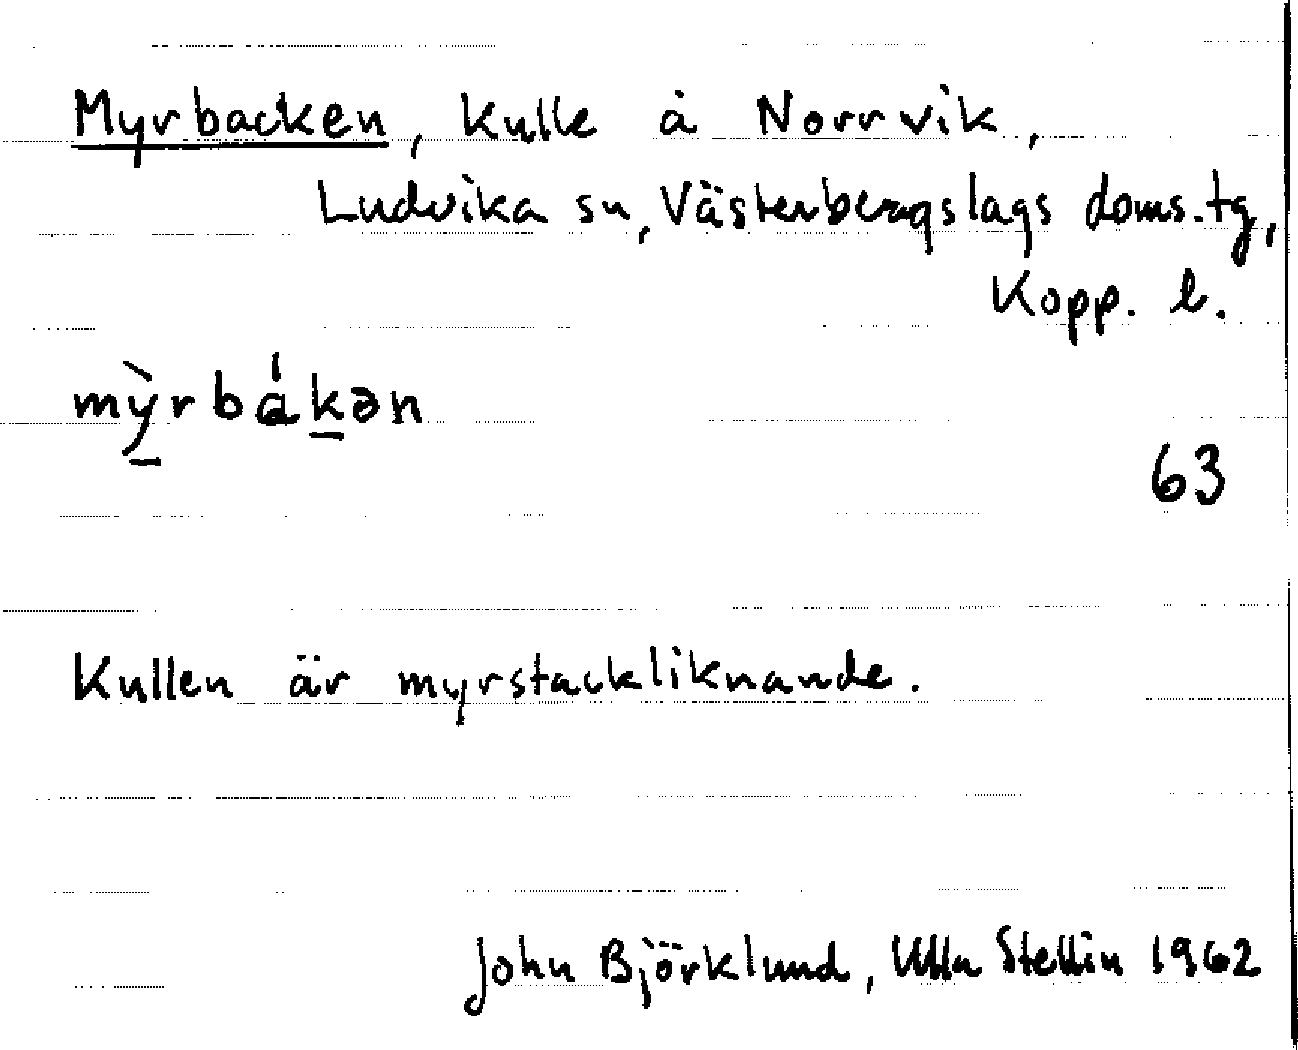 Myrbacken, Kulle å Norrvik,
Ludvika sn, Västerbergslags doms.tg,
Kopp. l.
mỳ̱rbáḵən
63
Kullen är myrstackliknande.
John Björklund, Ulla Stellin 1962